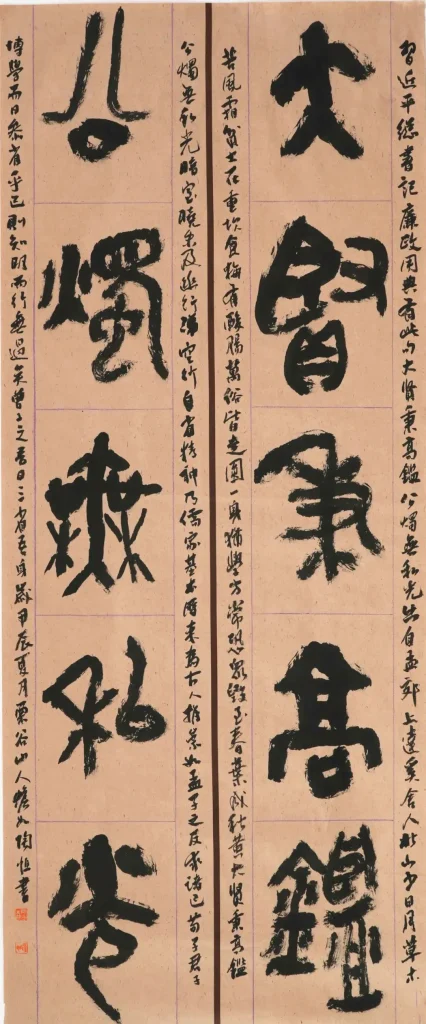 習近平總書記廉政用典有此句大賢秉高鑑公燭無私光出自孟郊上達奚舍人北山少日月草木
大賢秉高鑑
苦風霜貧士在重坎食梅有酸腸萬俗皆走圓一身猶學方常恐眾毀至春葉成秋黃大賢秉高鑑
公燭無私光暗室曉未及幽行涕空行自省精神乃儒家基本為古人推崇如孟子之反求諸己荀子君子
公燭無私光
博學而日參省乎己則知明而行無過矣曾子之吾日三省吾身歲甲辰夏月栗谷山人陶恒書